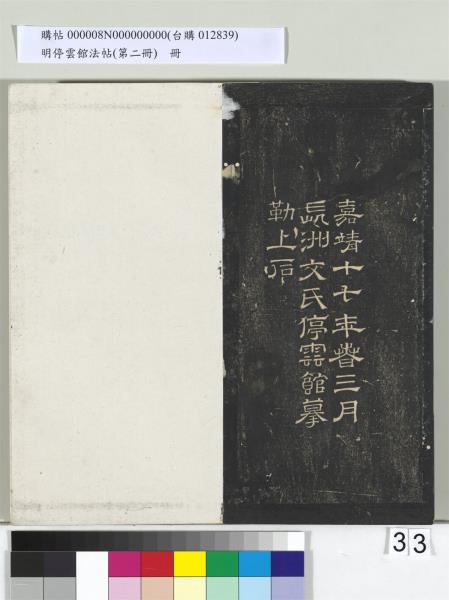 購帖 000008N000000000(台購 012839)
明停雲館法帖(第二冊)　冊
嘉靖十七年春三月
長洲文氏停雲館摹
勒上石
33